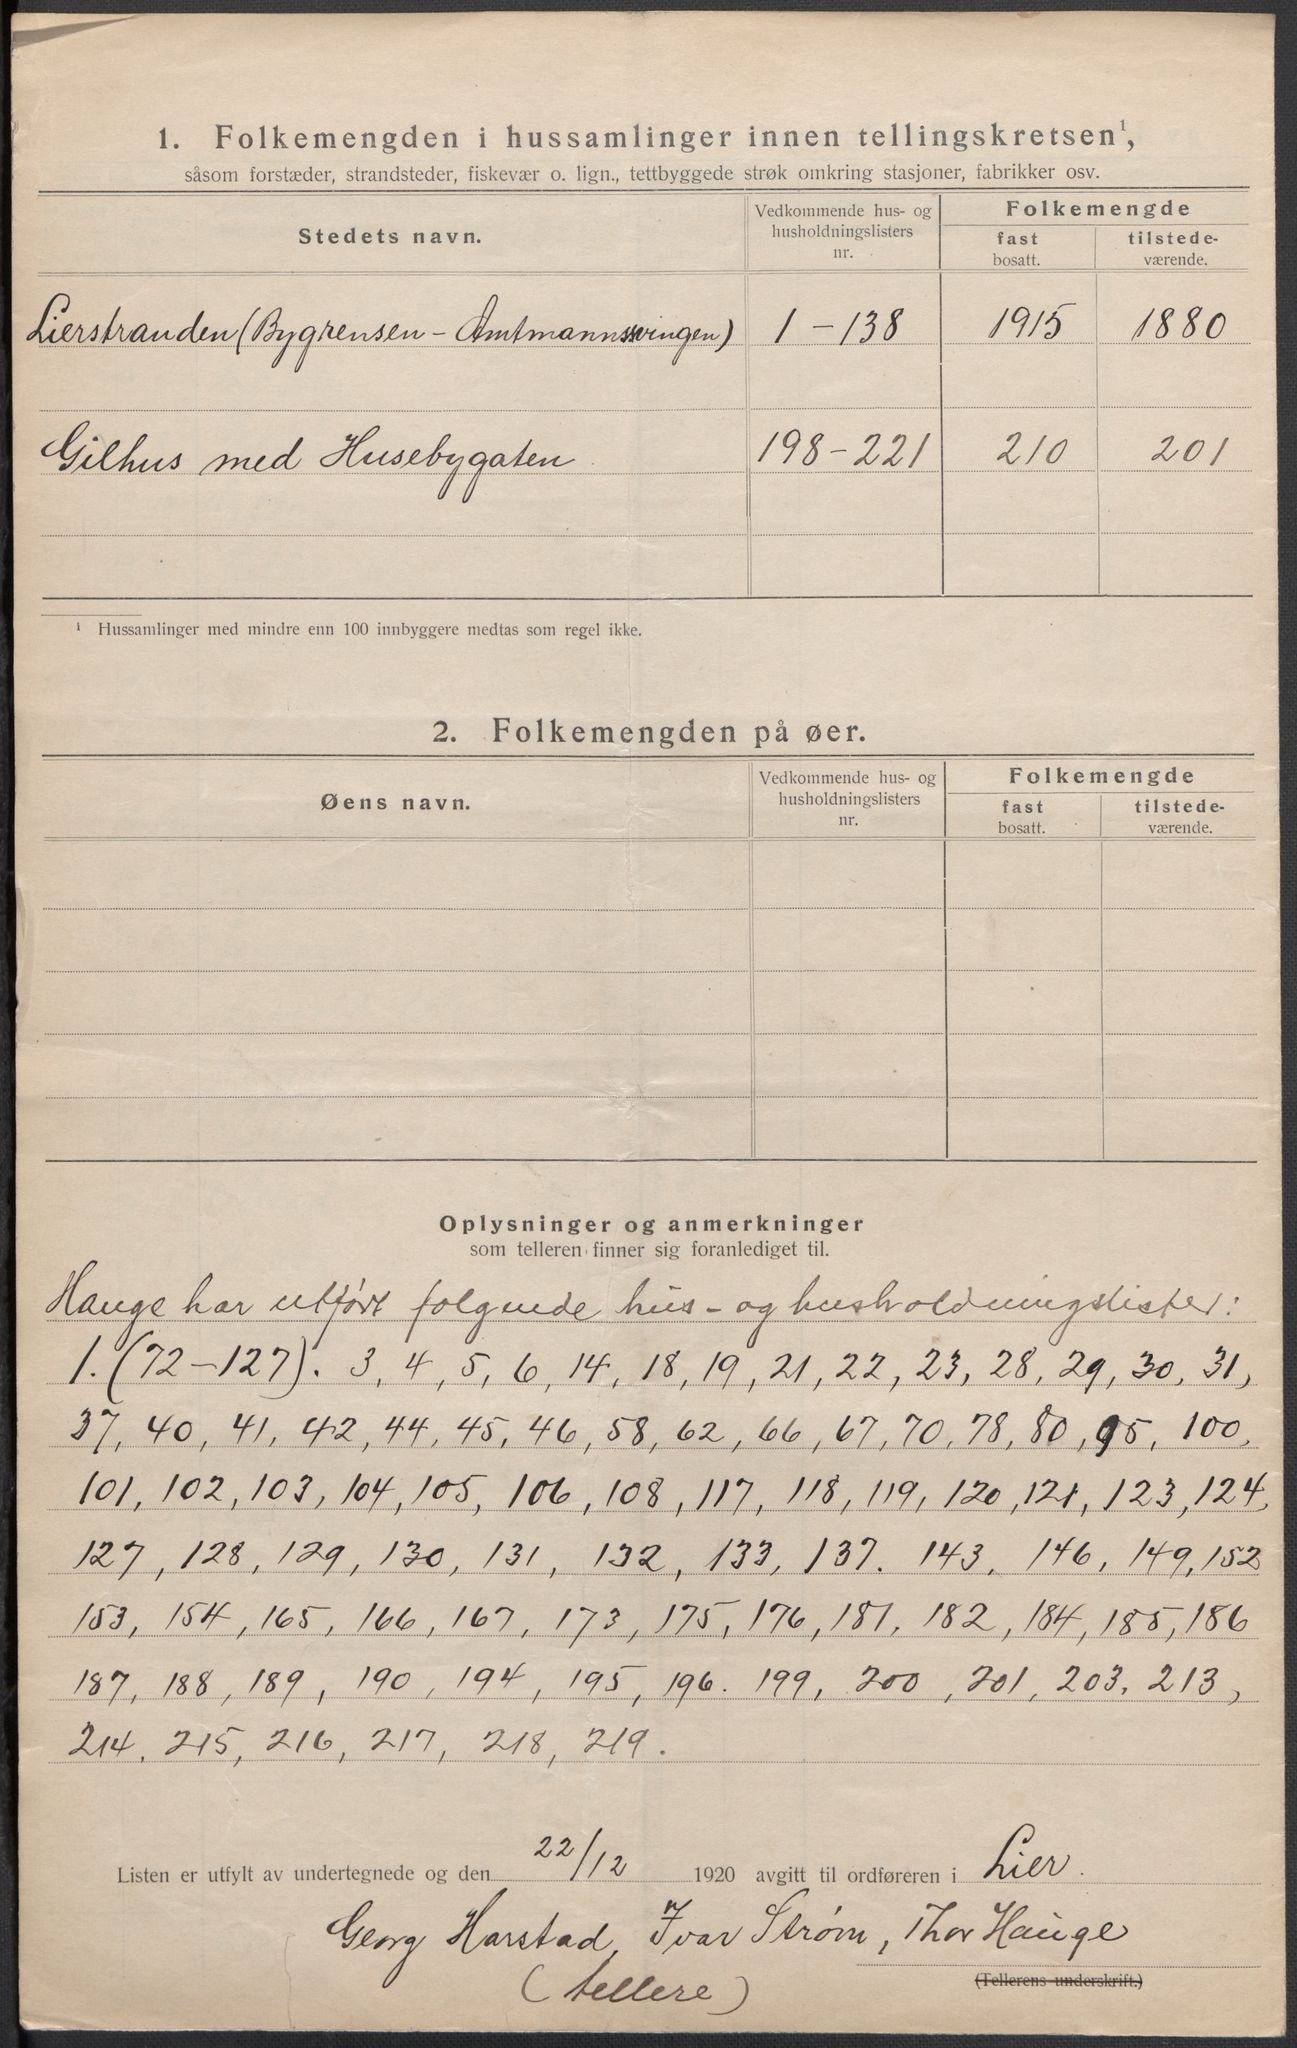 1. Folkemengden i hussamlinger innen tellingskretsen¹,
såsom forstæder, strandsteder, fiskevær o. lign., tettbyggede strøk omkring stasjoner, fabrikker osv.
Stedets navn.
Vedkommende hus- og
husholdningslisters
nr.
Folkemengde
fast
bosatt.
tilstede-
værende.
Lierstranden (Bygrensen - Amtmannssvingen) 1 - 138 1915 1880
Gilhus med Husebygaten 198 - 221 210 201
¹ Hussamlinger med mindre enn 100 innbyggere medtas som regel ikke.
2. Folkemengden på øer.
Øens navn.
Vedkommende hus- og
husholdningslisters
nr.
Folkemengde
fast
bosatt.
tilstede-
værende.
Oplysninger og anmerkninger
som telleren finner sig foranlediget til.
Hauge har utført følgende hus - og husholdningslister:
1. (72 - 127). 3, 4, 5, 6, 14, 18, 19, 21, 22, 23, 28, 29, 30, 31,
37, 40, 41, 42, 44, 45, 46, 58, 62, 66, 67, 70, 78, 80, 95, 100,
101, 102, 103, 104, 105, 106, 108, 117, 118, 119, 120, 121, 123, 124,
127, 128, 129, 130, 131, 132, 133, 137. 143, 146, 149, 152
153, 154, 165, 166, 167, 173, 175, 176, 181, 182, 184, 185, 186
187, 188, 189, 190, 194, 195, 196. 199, 200, 201, 203, 213,
214, 215, 216, 217, 218, 219.
Listen er utfylt av undertegnede og den 22/12 1920 avgitt til ordføreren i Lier.
Georg Harstad, Ivar Strøm, Thor Hauge
(Tellerens underskrift.)
(tellere)